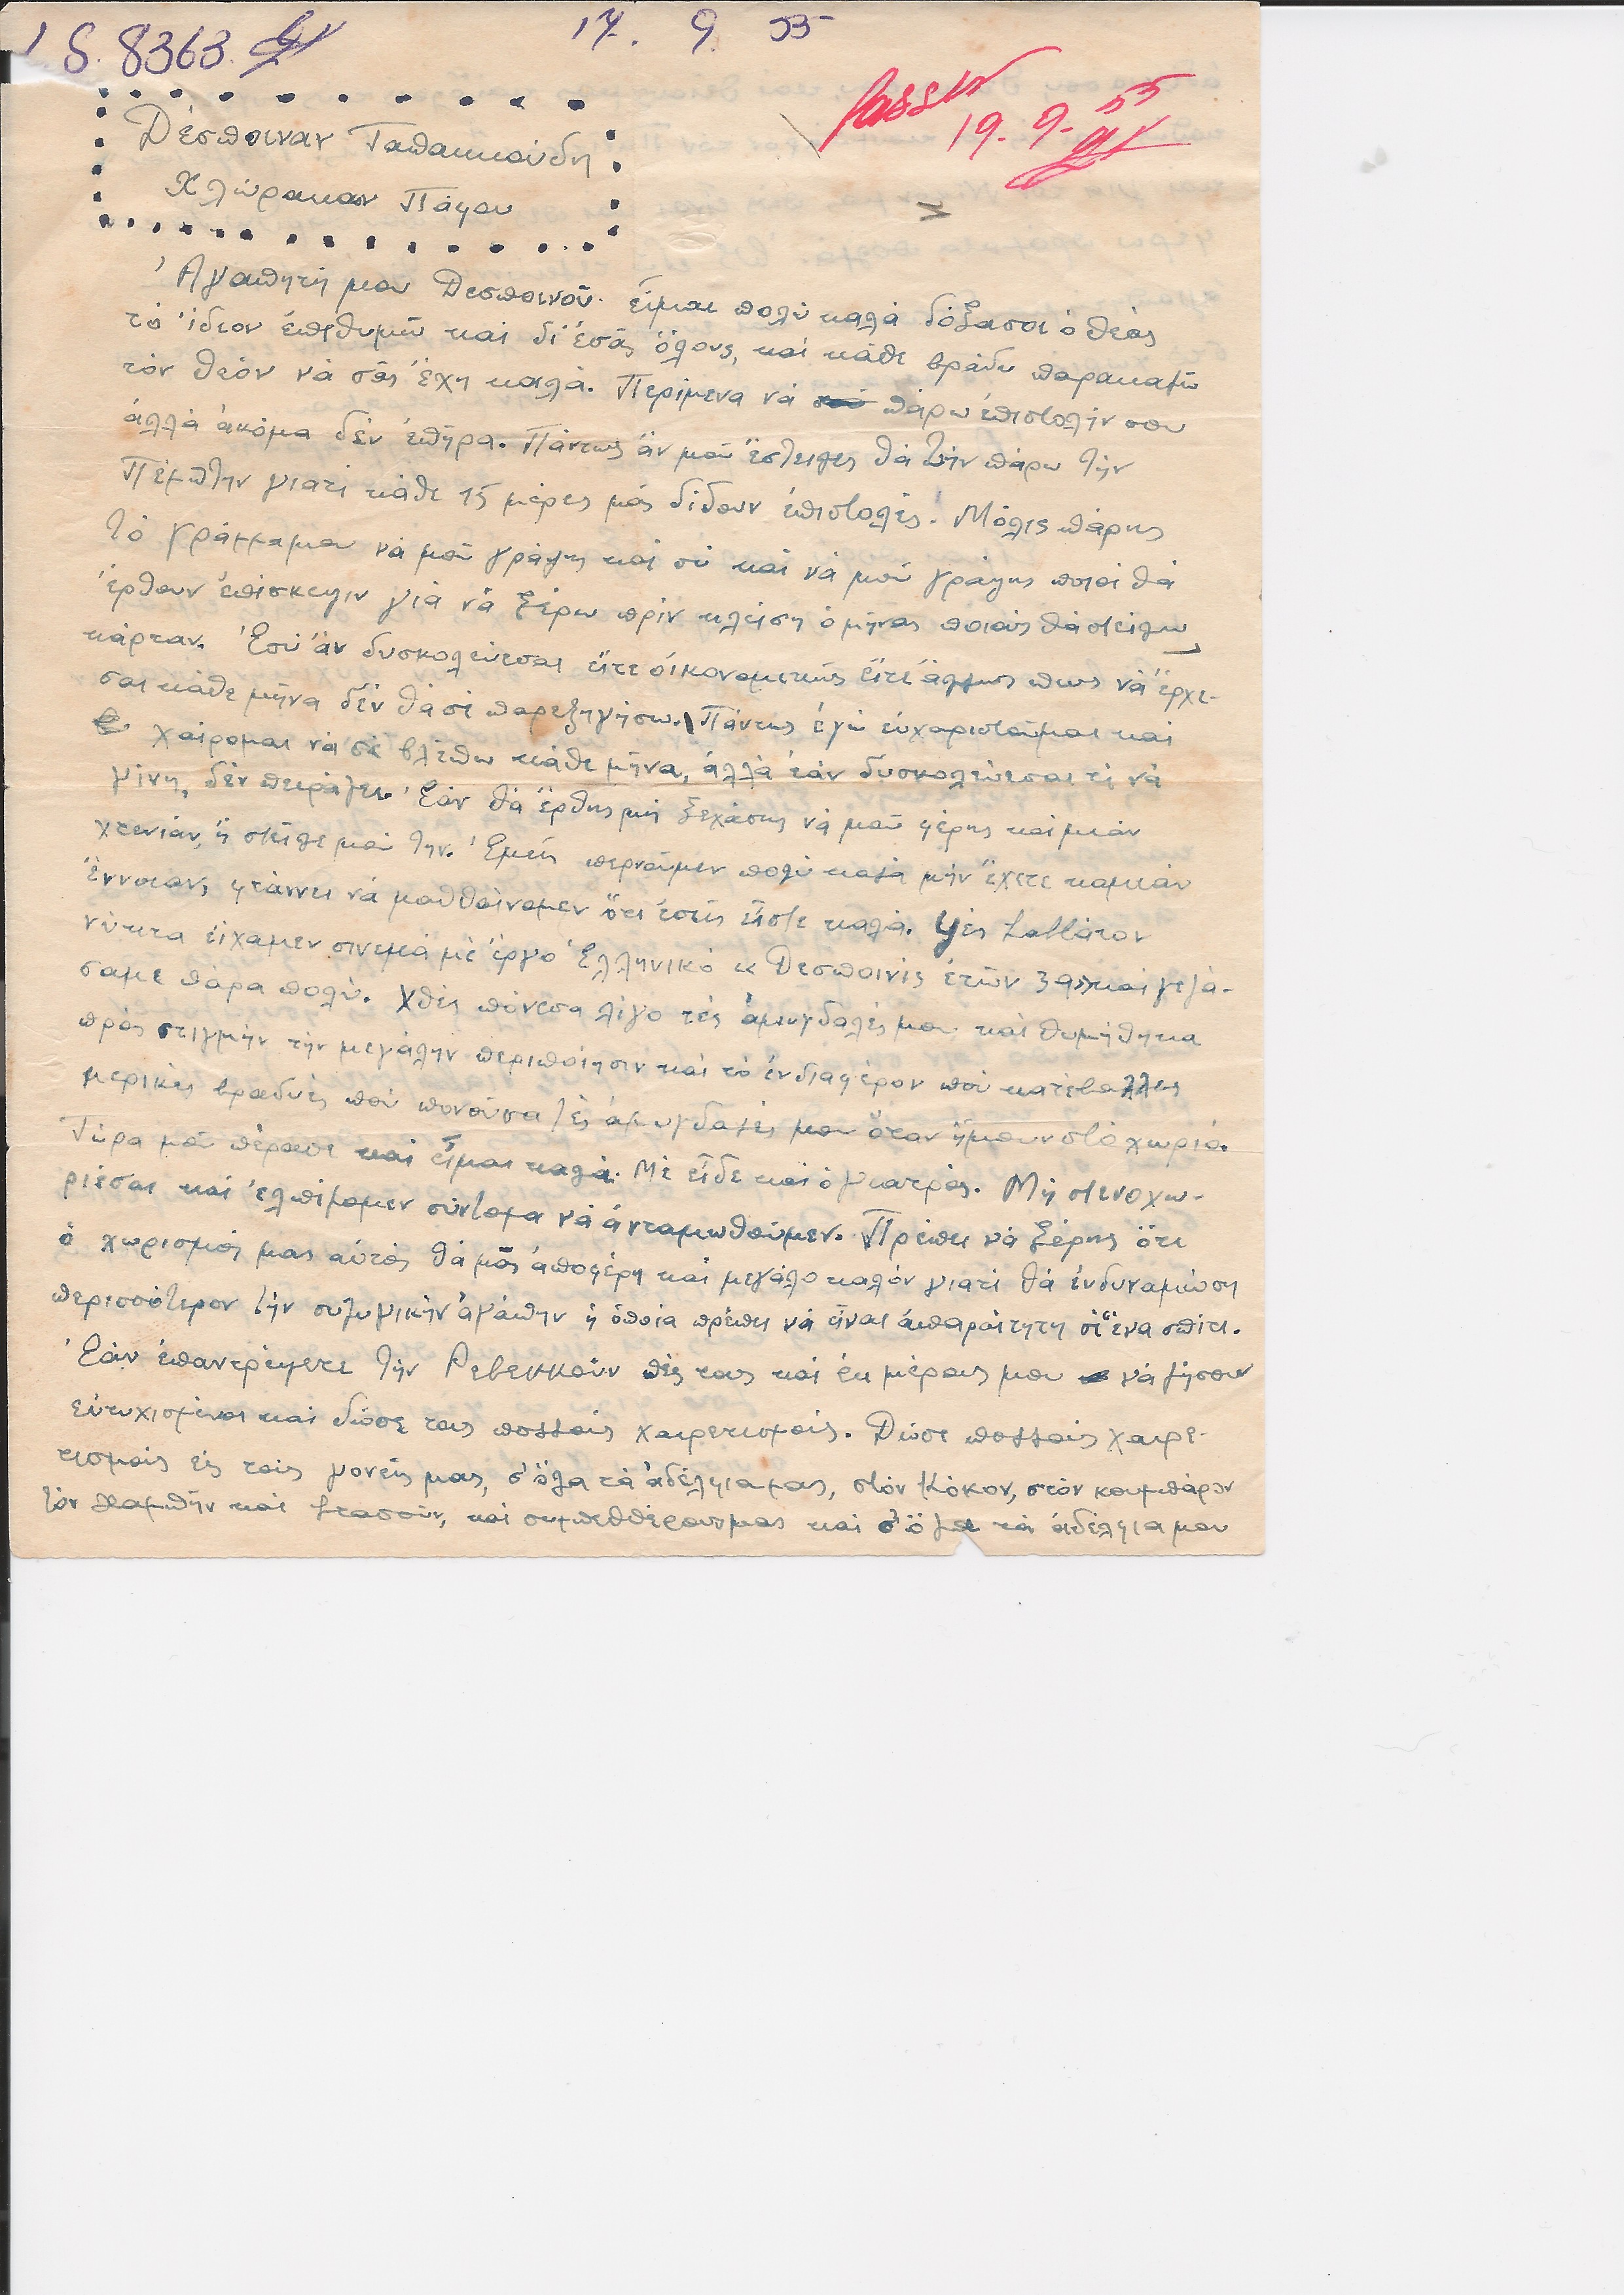 S. 8363. 17. 9. 55
Passed
19. 9. 55
Δέσποιναν Ταπακκούδη
Χλώρακαν Πάφου
Ἀγαπητή μου Δεσποινοῦ. εἶμαι πολύ καλά δόξασοι ὁ θεός
τό ἴδιον ἐπιθυμῶ καί δι' ἐσᾶς ὅλους, καί κάθε βράδυ παρακαλῶ
τόν θεόν νά σᾶς ἔχη καλά. Περίμενα νά πάρω ἐπιστολήν σου
ἀλλά ἀκόμα δέν ἐπῆρα. Πάντως ἄν μοῦ ἔστειλες θά τήν πάρω τήν
Πέμπτην γιατί κάθε 15 μέρες μᾶς δίδουν ἐπιστολές. Μόλις πάρης
τό γράμμα μου νά μοῦ γράψης καί σύ καί νά μοῦ γράψης ποιοί θά
ἔρθουν ἐπίσκεψιν γιά νά ξέρω πρίν κλείση ὁ μῆνας ποιούς θά στείλω
κάρταν. Ἐσύ ἄν δυσκολεύεσαι εἴτε οἰκονομικῶς εἴτε ἄλλως πως νά ἔρχε-
σαι κάθε μῆνα δέν θά σέ παρεξηγήσω. Πάντως ἐγώ εὐχαριστοῦμαι καί
χαίρομαι νά σέ βλέπω κάθε μῆνα, ἀλλά ἐάν δυσκολεύεσαι τί νά
γίνη, δέν πειράζει. Ἐάν θά ἔρθης μή ξεχάσης νά μοῦ φέρης καί μιάν
χτενιάν, ἤ στεῖλε μού την. Ἐμεῖς περνοῦμεν πολύ καλά μήν ἔχετε καμιάν
ἔννοιαν, φτάννει νά μαθθαίνομεν ὅτι ἐσεῖς εἶστε καλά. Ψές Σαββάτον
νύκτα εἴχαμεν σινεμά μέ ἔργο Ἑλληνικό «Δεσποινίς ἐτῶν 39» καί γελά-
σαμε πάρα πολύ. Χθές πόνεσα λίγο τές ἀμυγδαλές μου καί θυμήθηκα
πρός στιγμήν τήν μεγάλην περιποίησιν καί τό ἐνδιαφέρον πού κατέβαλλες
μερικές βραδυές πού πονοῦσα τές ἀμυγδαλές μου ὅταν ἤμουν στό χωριό.
Τώρα μοῦ πέρασε καί εἶμαι καλά. Μέ εἶδε καί ὁ γιατρός. Μή στενοχω-
ριέσαι καί ἐλπίζομεν σύντομα νά ἀνταμωθοῦμεν. Πρέπει νά ξέρης ὅτι
ὁ χωρισμός μας αὐτός θά μᾶς ἀποφέρη καί μεγάλο καλόν γιατί θά ἐνδυναμώση
περισσότερον τήν συζυγικήν ἀγάπην ἡ ὁποία πρέπει νά εἶναι ἀπαραίτητη σέ ἕνα σπίτι.
Ἐάν ἐπαντρέψετε τήν Ρεβεκκοῦν πές τους καί ἐκ μέρους μου νά ζήσουν
εὐτυχισμένοι καί δῶσε τους πολλούς χαιρετισμούς. Δῶσε πολλούς χαιρε-
τισμούς εἰς τούς γονεῖς μας, σ' ὅλα τά ἀδέλφια μας, στόν Κόκον, στόν κουμπάρον
τόν καί, καί συμπεθθέρους μας καί σ' ὅλα τά ἀδέλφια μου